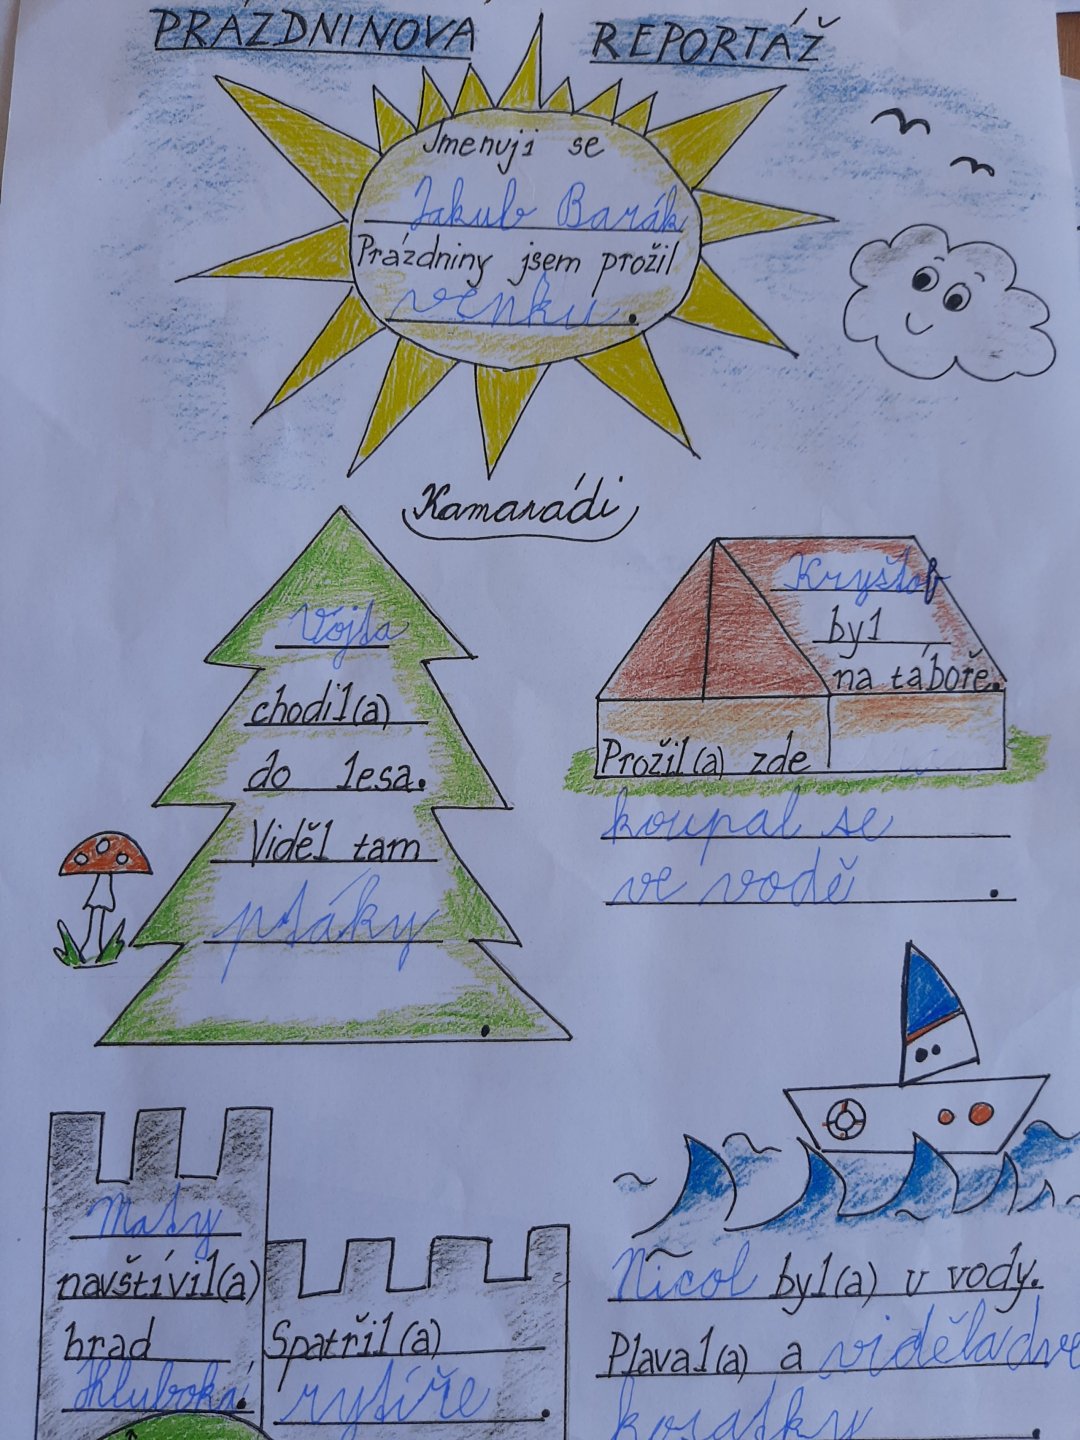 PRÁZDNINOVÁ REPORTÁŽ
Jmenuji se
Jakub Barák
Prázdniny jsem prožil
venku.
Kamarádi
Vojta
chodil(a)
do lesa.
Viděl tam
ptáky
.
Kryštof
byl
na táboře.
Prožil(a) zde
koupal se
ve vodě.
Maty
navštívil(a)
hrad
Hluboká.
Spatřil(a)
rytíře.
Nicol byl(a) u vody.
Plaval(a) a viděla dvě
kosatky.